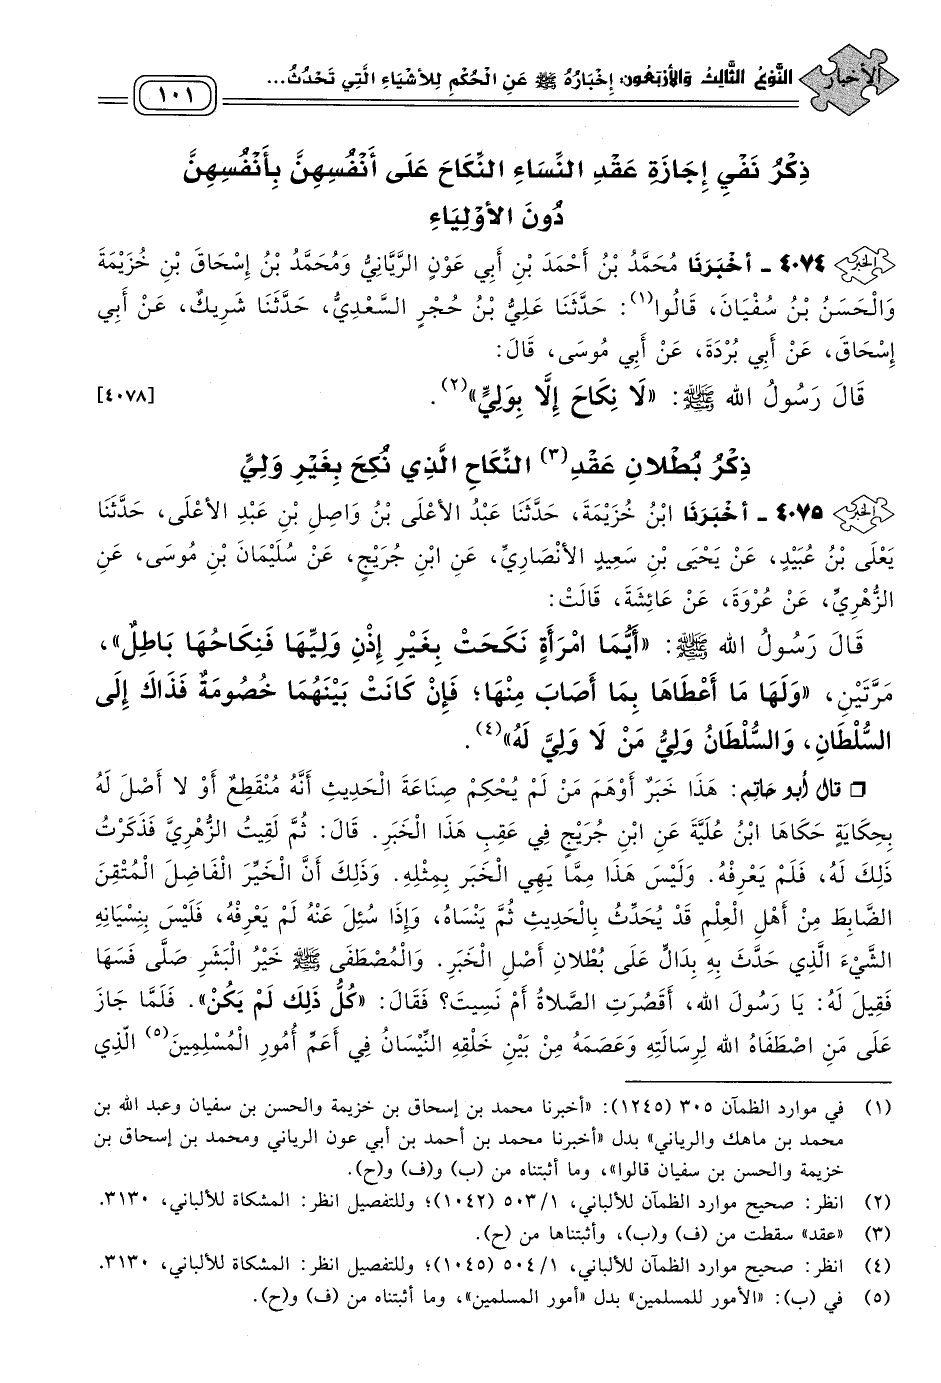 الأخبار
النَّوْعُ الثَّالِثُ وَالأَرْبَعُون: إِخْبَارُهُ ﷺ عَنِ الْحُكْمِ لِلأَشْيَاءِ الَّتِي تَحْدُثُ...
١٠١
ذِكْرُ نَفْيِ إِجَازَةِ عَقْدِ النِّسَاءِ النِّكَاحَ عَلَى أَنْفُسِهِنَّ بِأَنْفُسِهِنَّ
دُونَ الأَوْلِيَاءِ
٤٠٧٤ ـ أَخْبَرَنَا مُحَمَّدُ بْنُ أَحْمَدَ بْنِ أَبِي عَوْنٍ الرَّيَّانِيُّ وَمُحَمَّدُ بْنُ إِسْحَاقَ بْنِ خُزَيْمَةَ
وَالْحَسَنُ بْنُ سُفْيَانَ، قَالُوا(١): حَدَّثَنَا عَلِيُّ بْنُ حُجْرٍ السَّعْدِيُّ، حَدَّثَنَا شَرِيكٌ، عَنْ أَبِي
إِسْحَاقَ، عَنْ أَبِي بُرْدَةَ، عَنْ أَبِي مُوسَى، قَالَ:
قَالَ رَسُولُ الله ﷺ: «لَا نِكَاحَ إِلَّا بِوَلِيٍّ»(٢). [٤٠٧٨]
ذِكْرُ بُطْلانِ عَقْدِ(٣) النِّكَاحِ الَّذِي نُكِحَ بِغَيْرِ وَلِيٍّ
٤٠٧٥ ـ أَخْبَرَنَا ابْنُ خُزَيْمَةَ، حَدَّثَنَا عَبْدُ الأَعْلَى بْنُ وَاصِلِ بْنِ عَبْدِ الأَعْلَى، حَدَّثَنَا
يَعْلَى بْنُ عُبَيْدٍ، عَنْ يَحْيَى بْنِ سَعِيدٍ الأَنْصَارِيِّ، عَنِ ابْنِ جُرَيْجٍ، عَنْ سُلَيْمَانَ بْنِ مُوسَى، عَنِ
الزُّهْرِيِّ، عَنْ عُرْوَةَ، عَنْ عَائِشَةَ، قَالَتْ:
قَالَ رَسُولُ الله ﷺ: «أَيُّمَا امْرَأَةٍ نَكَحَتْ بِغَيْرِ إِذْنِ وَلِيِّهَا فَنِكَاحُهَا بَاطِلٌ»،
مَرَّتَيْنِ، «وَلَهَا مَا أَعْطَاهَا بِمَا أَصَابَ مِنْهَا؛ فَإِنْ كَانَتْ بَيْنَهُمَا خُصُومَةٌ فَذَاكَ إِلَى
السُّلْطَانِ، وَالسُّلْطَانُ وَلِيُّ مَنْ لَا وَلِيَّ لَهُ»(٤).
❒ قال أبو حاتم: هَذَا خَبَرٌ أَوْهَمَ مَنْ لَمْ يُحْكِمْ صِنَاعَةَ الْحَدِيثِ أَنَّهُ مُنْقَطِعٌ أَوْ لا أَصْلَ لَهُ
بِحِكَايَةٍ حَكَاهَا ابْنُ عُلَيَّةَ عَنِ ابْنِ جُرَيْجٍ فِي عَقِبِ هَذَا الْخَبَرِ. قَالَ: ثُمَّ لَقِيتُ الزُّهْرِيَّ فَذَكَرْتُ
ذَلِكَ لَهُ، فَلَمْ يَعْرِفْهُ. وَلَيْسَ هَذَا مِمَّا يَهِي الْخَبَرِ بِمِثْلِهِ. وَذَلِكَ أَنَّ الْخَيِّرَ الْفَاضِلَ الْمُتْقِنَ
الضَّابِطَ مِنْ أَهْلِ الْعِلْمِ قَدْ يُحَدِّثُ بِالْحَدِيثِ ثُمَّ يَنْسَاهُ، وَإِذَا سُئِلَ عَنْهُ لَمْ يَعْرِفْهُ، فَلَيْسَ بِنِسْيَانِهِ
الشَّيْءَ الَّذِي حَدَّثَ بِهِ بِدَالٍّ عَلَى بُطْلانِ أَصْلِ الْخَبَرِ. وَالْمُصْطَفَى ﷺ خَيْرُ الْبَشَرِ صَلَّى فَسَهَا
فَقِيلَ لَهُ: يَا رَسُولَ الله، أَقَصُرَتِ الصَّلاةُ أَمْ نَسِيتَ؟ فَقَالَ: «كُلُّ ذَلِكَ لَمْ يَكُنْ». فَلَمَّا جَازَ
عَلَى مَنِ اصْطَفَاهُ الله لِرِسَالَتِهِ وَعَصَمَهُ مِنْ بَيْنِ خَلْقِهِ النِّسْيَانُ فِي أَعَمِّ أُمُورِ الْمُسْلِمِينَ(٥) الَّذِي
(١) في موارد الظمآن ٣٠٥ (١٢٤٥): «أخبرنا محمد بن إسحاق بن خزيمة والحسن بن سفيان وعبد الله بن
محمد بن ماهك والرياني» بدل «أخبرنا محمد بن أحمد بن أبي عون الرياني ومحمد بن إسحاق بن
خزيمة والحسن بن سفيان قالوا»، وما أثبتناه من (ب) و(ف) و(ح).
(٢) انظر: صحيح موارد الظمآن للألباني، ٥٠٣/١ (١٠٤٢)؛ وللتفصيل انظر: المشكاة للألباني، ٣١٣٠.
(٣) «عقد» سقطت من (ف) و(ب)، وأثبتناها من (ح).
(٤) انظر: صحيح موارد الظمآن للألباني، ٥٠٤/١ (١٠٤٥)؛ وللتفصيل انظر: المشكاة للألباني، ٣١٣٠.
(٥) في (ب): «الأمور للمسلمين» بدل «أمور المسلمين»، وما أثبتناه من (ف) و(ح).